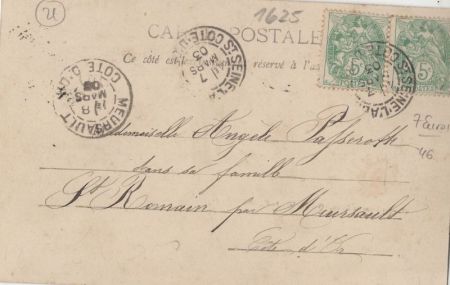 U
1625
CARTE POSTALE
Ce côté est réservé à l'a
MEURSAULT
COTE D'OR
8
MARS
03
COTE-D'OR
7
MARS
03
5
5
7 Euros
46
Mademoiselle Angèle
dans sa famille
St Romain par Meursault
Côte d'Or